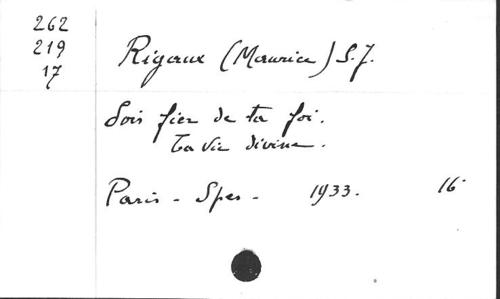 262
219
17
Rigaux (Maurice) S.J.
Sois fier de ta foi.
Ta vie divine.
Paris - Spes - 1933. 16°